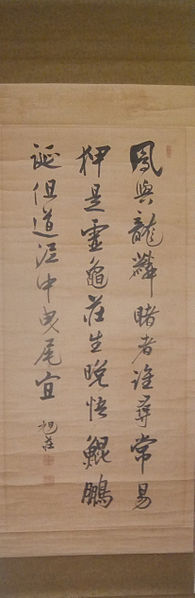 鳳與龍麟睹者誰尋常易
狎是靈龜荘生晩悟鯤鵬
誕但道泥中曳尾宜
旭荘